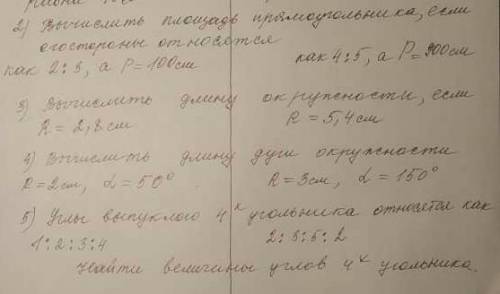 2) Вычислить площадь прямоугольника, если
его стороны относятся
как 2:3, а P=100см как 4:5, а P=900см
3) Вычислить длину окружности, если
R = 2,8см R = 5,4см
4) Вычислить длину дуги окружности
R=2см, α = 50° R=3см, α = 150°
5) Углы выпуклого 4х угольника относятся как
1:2:3:4 2:3:5:2
Найти величины углов 4х угольника.